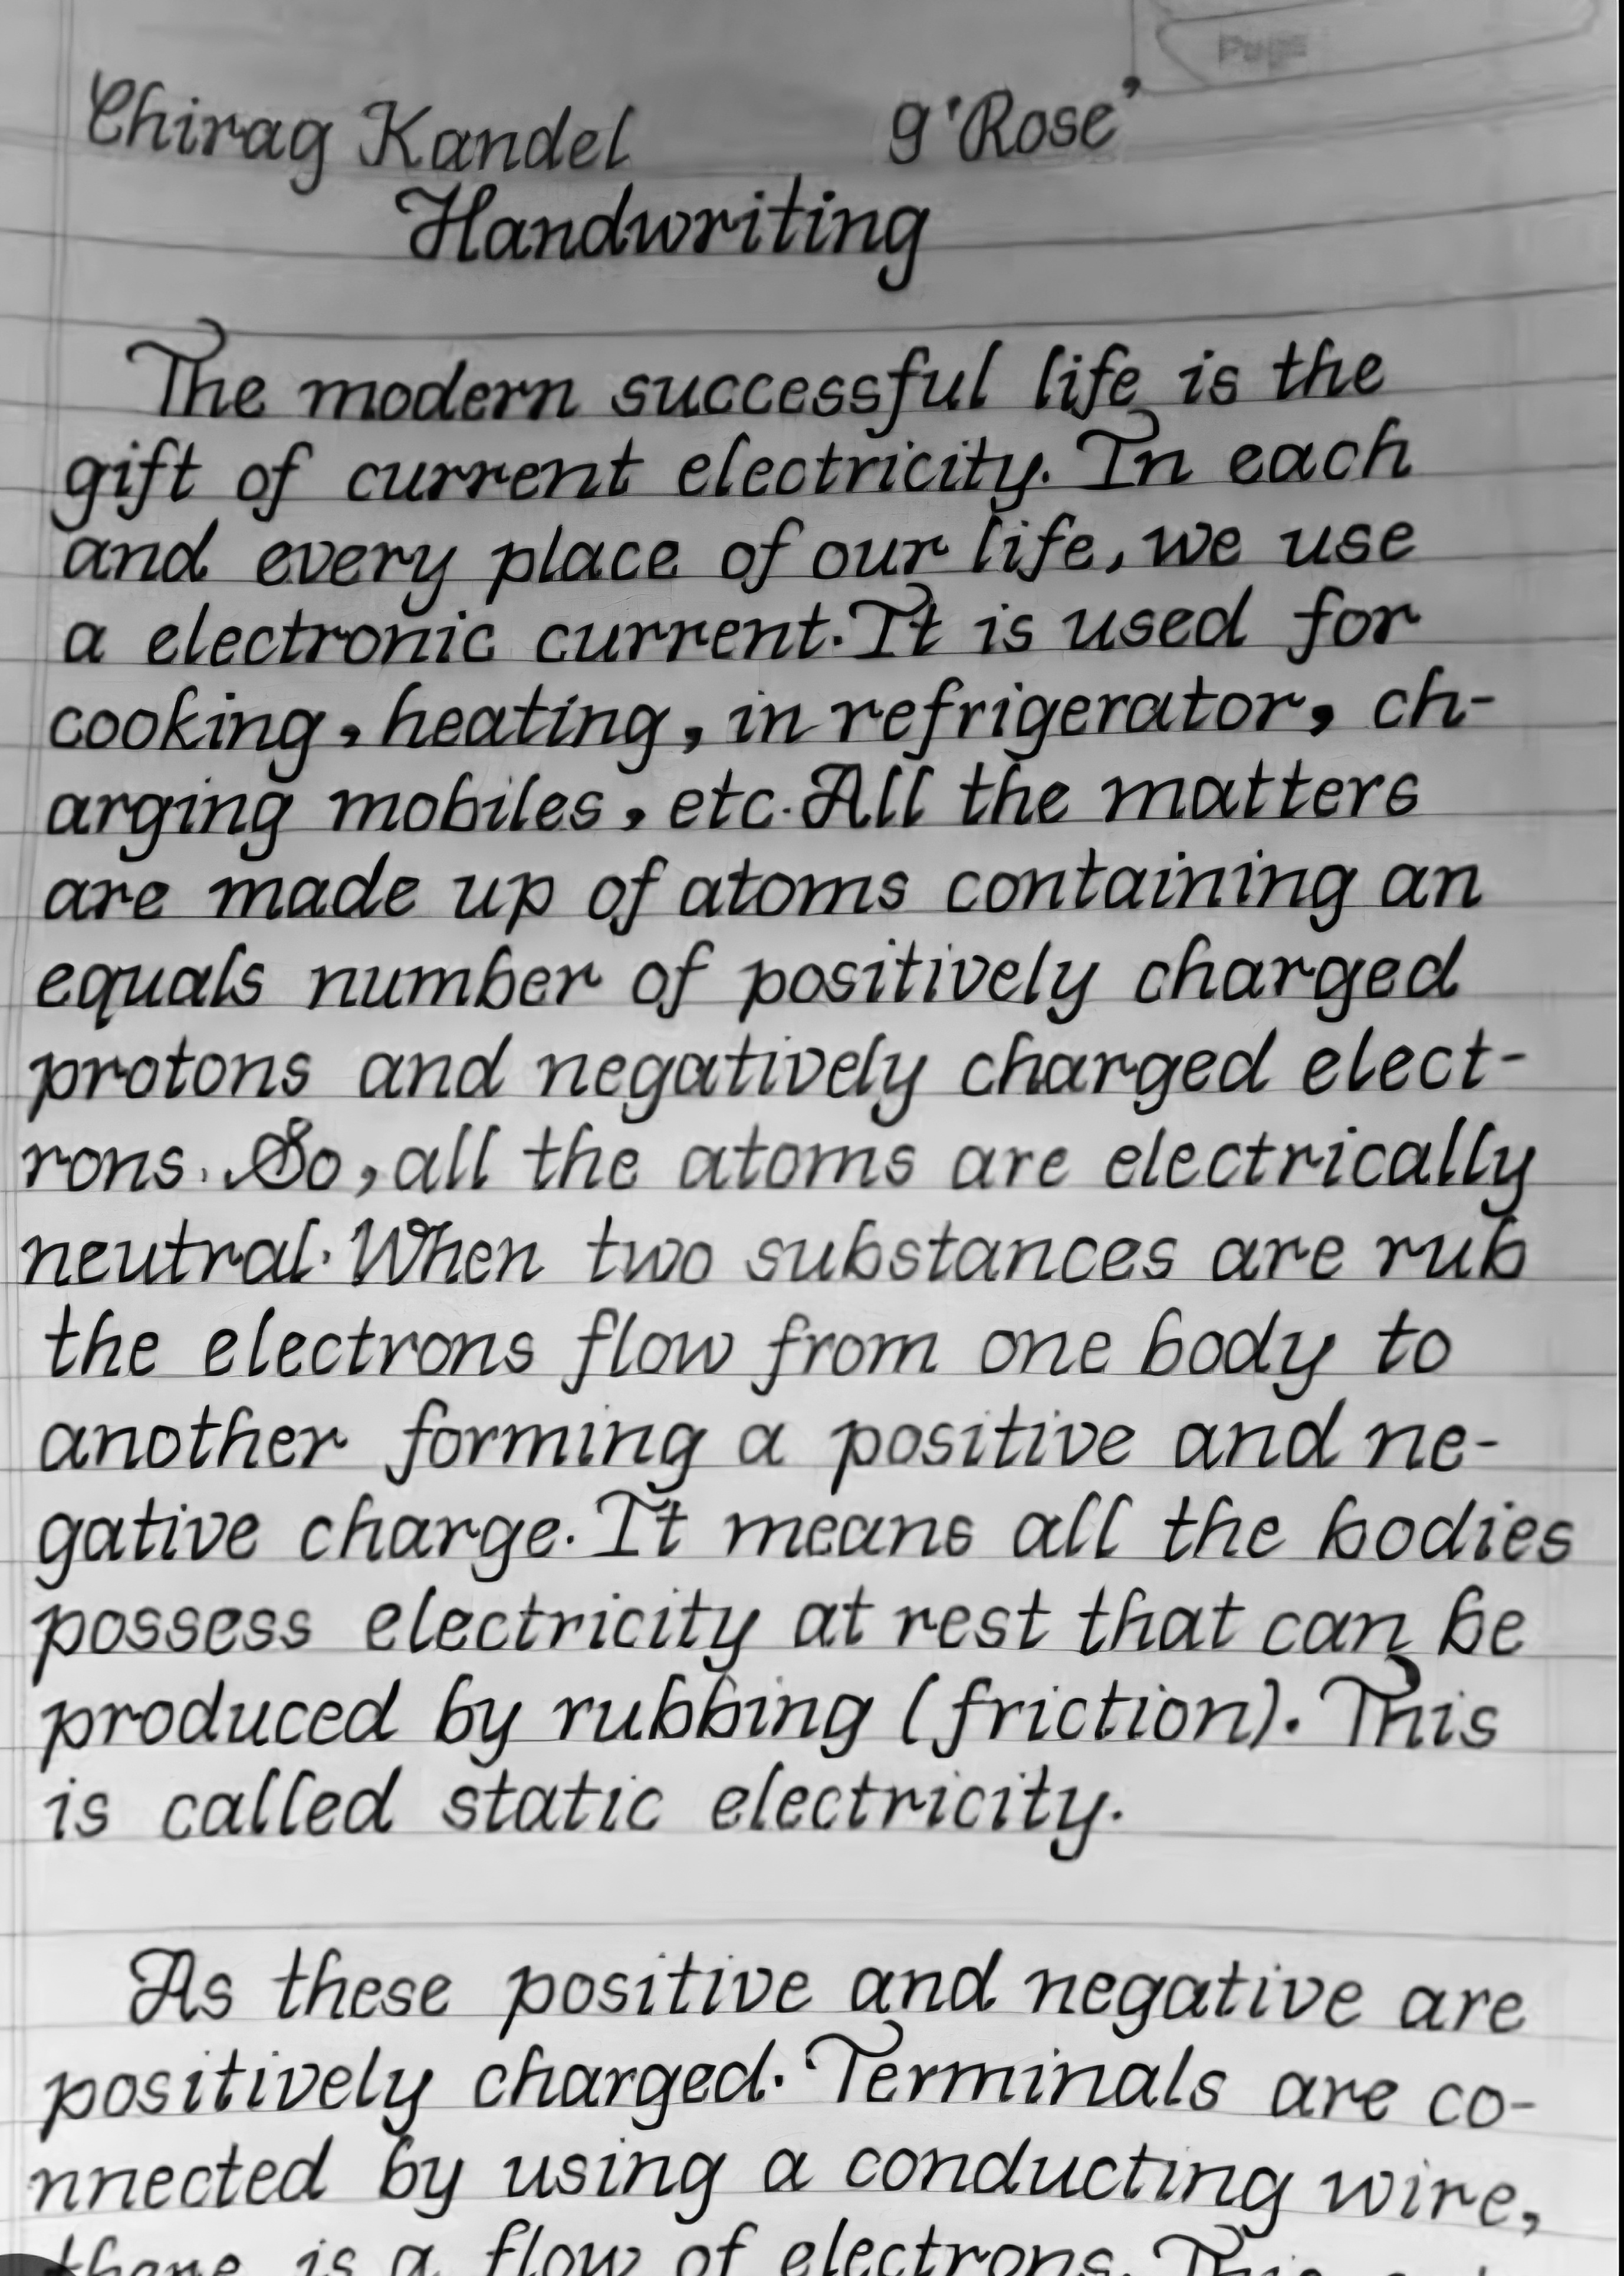 Page
Chirag Kandel 9 'Rose'
Handwriting
The modern successful life is the
gift of current electricity. In each
and every place of our life, we use
a electronic current. It is used for
cooking, heating, in refrigerator, ch-
arging mobiles, etc. All the matters
are made up of atoms containing an
equals number of positively charged
protons and negatively charged elect-
rons. So, all the atoms are electrically
neutral. When two substances are rub
the electrons flow from one body to
another forming a positive and ne-
gative charge. It means all the bodies
possess electricity at rest that can be
produced by rubbing (friction). This
is called static electricity.
As these positive and negative are
positively charged. Terminals are co-
nnected by using a conducting wire,
there is a flow of electrons. This